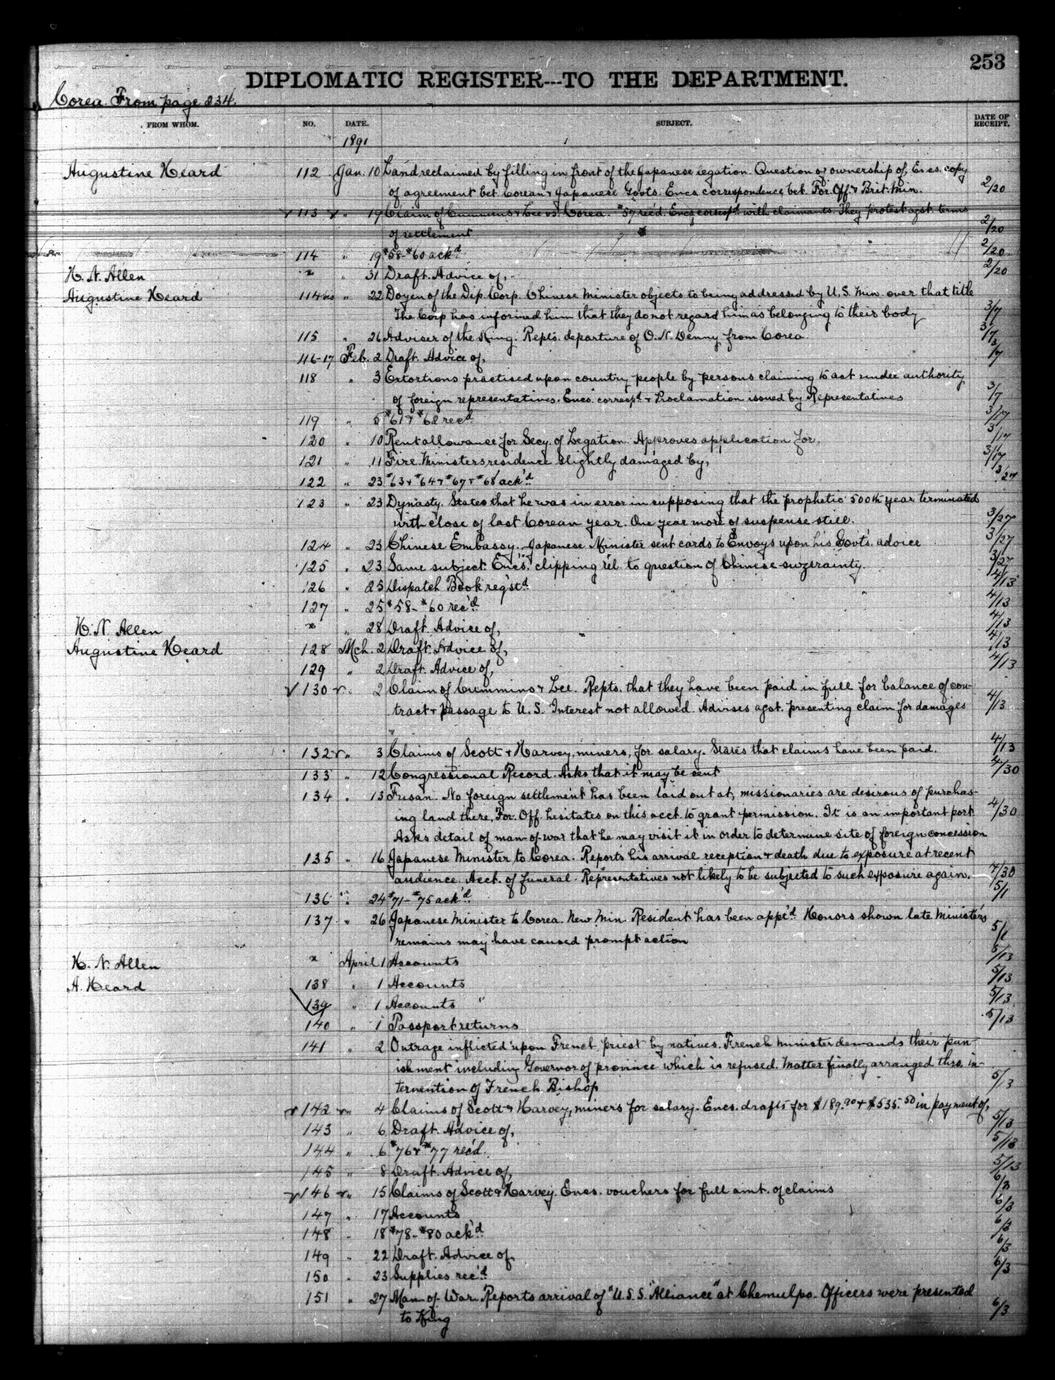 253
DIPLOMATIC REGISTER---TO THE DEPARTMENT.
Corea. From page 234.
FROM WHOM. NO. DATE. SUBJECT. DATE OF RECEIPT.
1891
Augustine Heard 112 Jan. 10 Land reclaimed by filling in front of the Japanese legation. Question as ownership of, Encs. copy
of agreement bet. Corean & Japanese Govts. Encs correspondence bet. For. Off. & Brit. Min. 2/20
113 " 19 Claim of Cummins & Lee vs. Corea. #57 rec'd. Encs. corespd. with claimants. They protest agst. terms
of settlement 2/20
114 " 19 #58-#60 ack'd 2/20
H. N. Allen " " 31 Draft. Advice of, 2/20
Augustine Heard 114 bis " 22 Doyen of the Dip. Corp. Chinese Minister objects to being addressed by U.S. Min. over that title
The Corp has informed him that they do not regard him as belonging to their body 3/7
115 " 26 Adviser of the King. Repts. departure of O. N. Denny from Corea 3/7
116-17 Feb. 2 Draft. Advice of,
118 " 3 Extortions practised upon country people by persons claiming to act under authority
of foreign representatives. Encs. correspd. & Proclamation issued by Representatives 3/7
119 " 5 #61 & #62 rec'd 3/17
120 " 10 Rent allowance for Secy. of Legation. Approves application for, 3/17
121 " 11 Fire. Ministers residence slightly damaged by, 3/17
122 " 23 #63 & #64 & #67 & #68 ack'd. 3/27
123 " 23 Dynasty. States that he was in error in supposing that the prophetic 500th year terminated
with close of last Corean year. One year more of suspense still. 3/27
124 " 23 Chinese Embassy. Japanese Minister sent cards to Envoys upon his Govt's. advice 3/27
125 " 23 Same subject. Encs. clipping rel. to question of Chinese suzerainty. 3/27
126 " 23 Dispatch Book reqst'd 4/13
127 " 25 #58-#60 rec'd 4/13
H. N. Allen " " 28 Draft. Advice of, 4/13
Augustine Heard 128 Mch. 2 Draft. Advice of, 4/13
129 2 Draft. Advice of, 4/13
130 " 2 Claim of Cummins & Lee. Repts. that they have been paid in full for balance of con-
tract & passage to U.S. Interest not allowed. Advises agst. presenting claim for damages 4/13
132 " 3 Claims of Scott & Harvey, miners, for salary. States that claims have been paid. 4/13
133 " 12 Congressional Record. Asks that it may be sent 4/30
134 " 13 Fusan. No foreign settlement has been laid out at, missionaries are desirous of purchas-
ing land there. For. Off. hesitates on this acct. to grant permission. It is an important port 4/30
Asks detail of man-of-war that he may visit it in order to determine site of foreign concession
135 " 16 Japanese Minister to Corea. Reports his arrival reception & death due to exposure at recent
audience. Acct. of funeral. Representatives not likely to be subjected to such exposure again. 4/30
136 " 24 #71-#75 ack'd. 5/1
137 " 26 Japanese Minister to Corea. New Min. Resident has been app'd. Honors shown late Ministers
remains may have caused prompt action 5/1
H. N. Allen " April 1 Accounts 5/13
A. Heard 138 " 1 Accounts 5/13
139 " 1 Accounts " 5/13
140 " 1 Passport returns 5/13
141 " 2 Outrage inflicted upon French priest by natives. French minister demands their pun-
ishment including Governor of province which is refused. Matter finally arranged thro. in-
tervention of French Bishop 5/13
142 " 4 Claims of Scott & Harvey, miners for salary. Encs. drafts for $189.90 & $535.50 in payment of, 5/13
143 " 6 Draft. Advice of, 5/13
144 " 6 #76 & #77 rec'd.
145 " 8 Draft. Advice of, 5/13
146 " 15 Claims of Scott & Harvey. Encs. vouchers for full amt. of claims 6/3
147 " 17 Accounts 6/3
148 " 18 #78-#80 ack'd 6/3
149 " 22 Draft. Advice of. 6/3
150 " 23 Supplies rec'd. 6/3
151 " 27 Man-of-War. Reports arrival of "U.S.S. Alliance" at Chemulpo. Officers were presented
to King 6/3